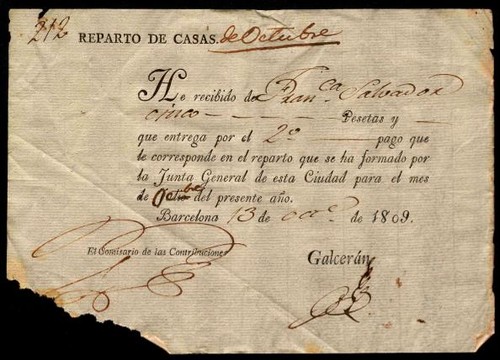 212 REPARTO DE CASAS. de Octubre
He recibido de Fran.ca Salvador
cinco Pesetas y
que entrega por el 2º pago que
le corresponde en el reparto que se ha formado por
la Junta General de esta Ciudad para el mes
de Octbre del presente año.
Barcelona 13 de Octe. de 1809.
El Comisario de las Contribuciones
Galcerán